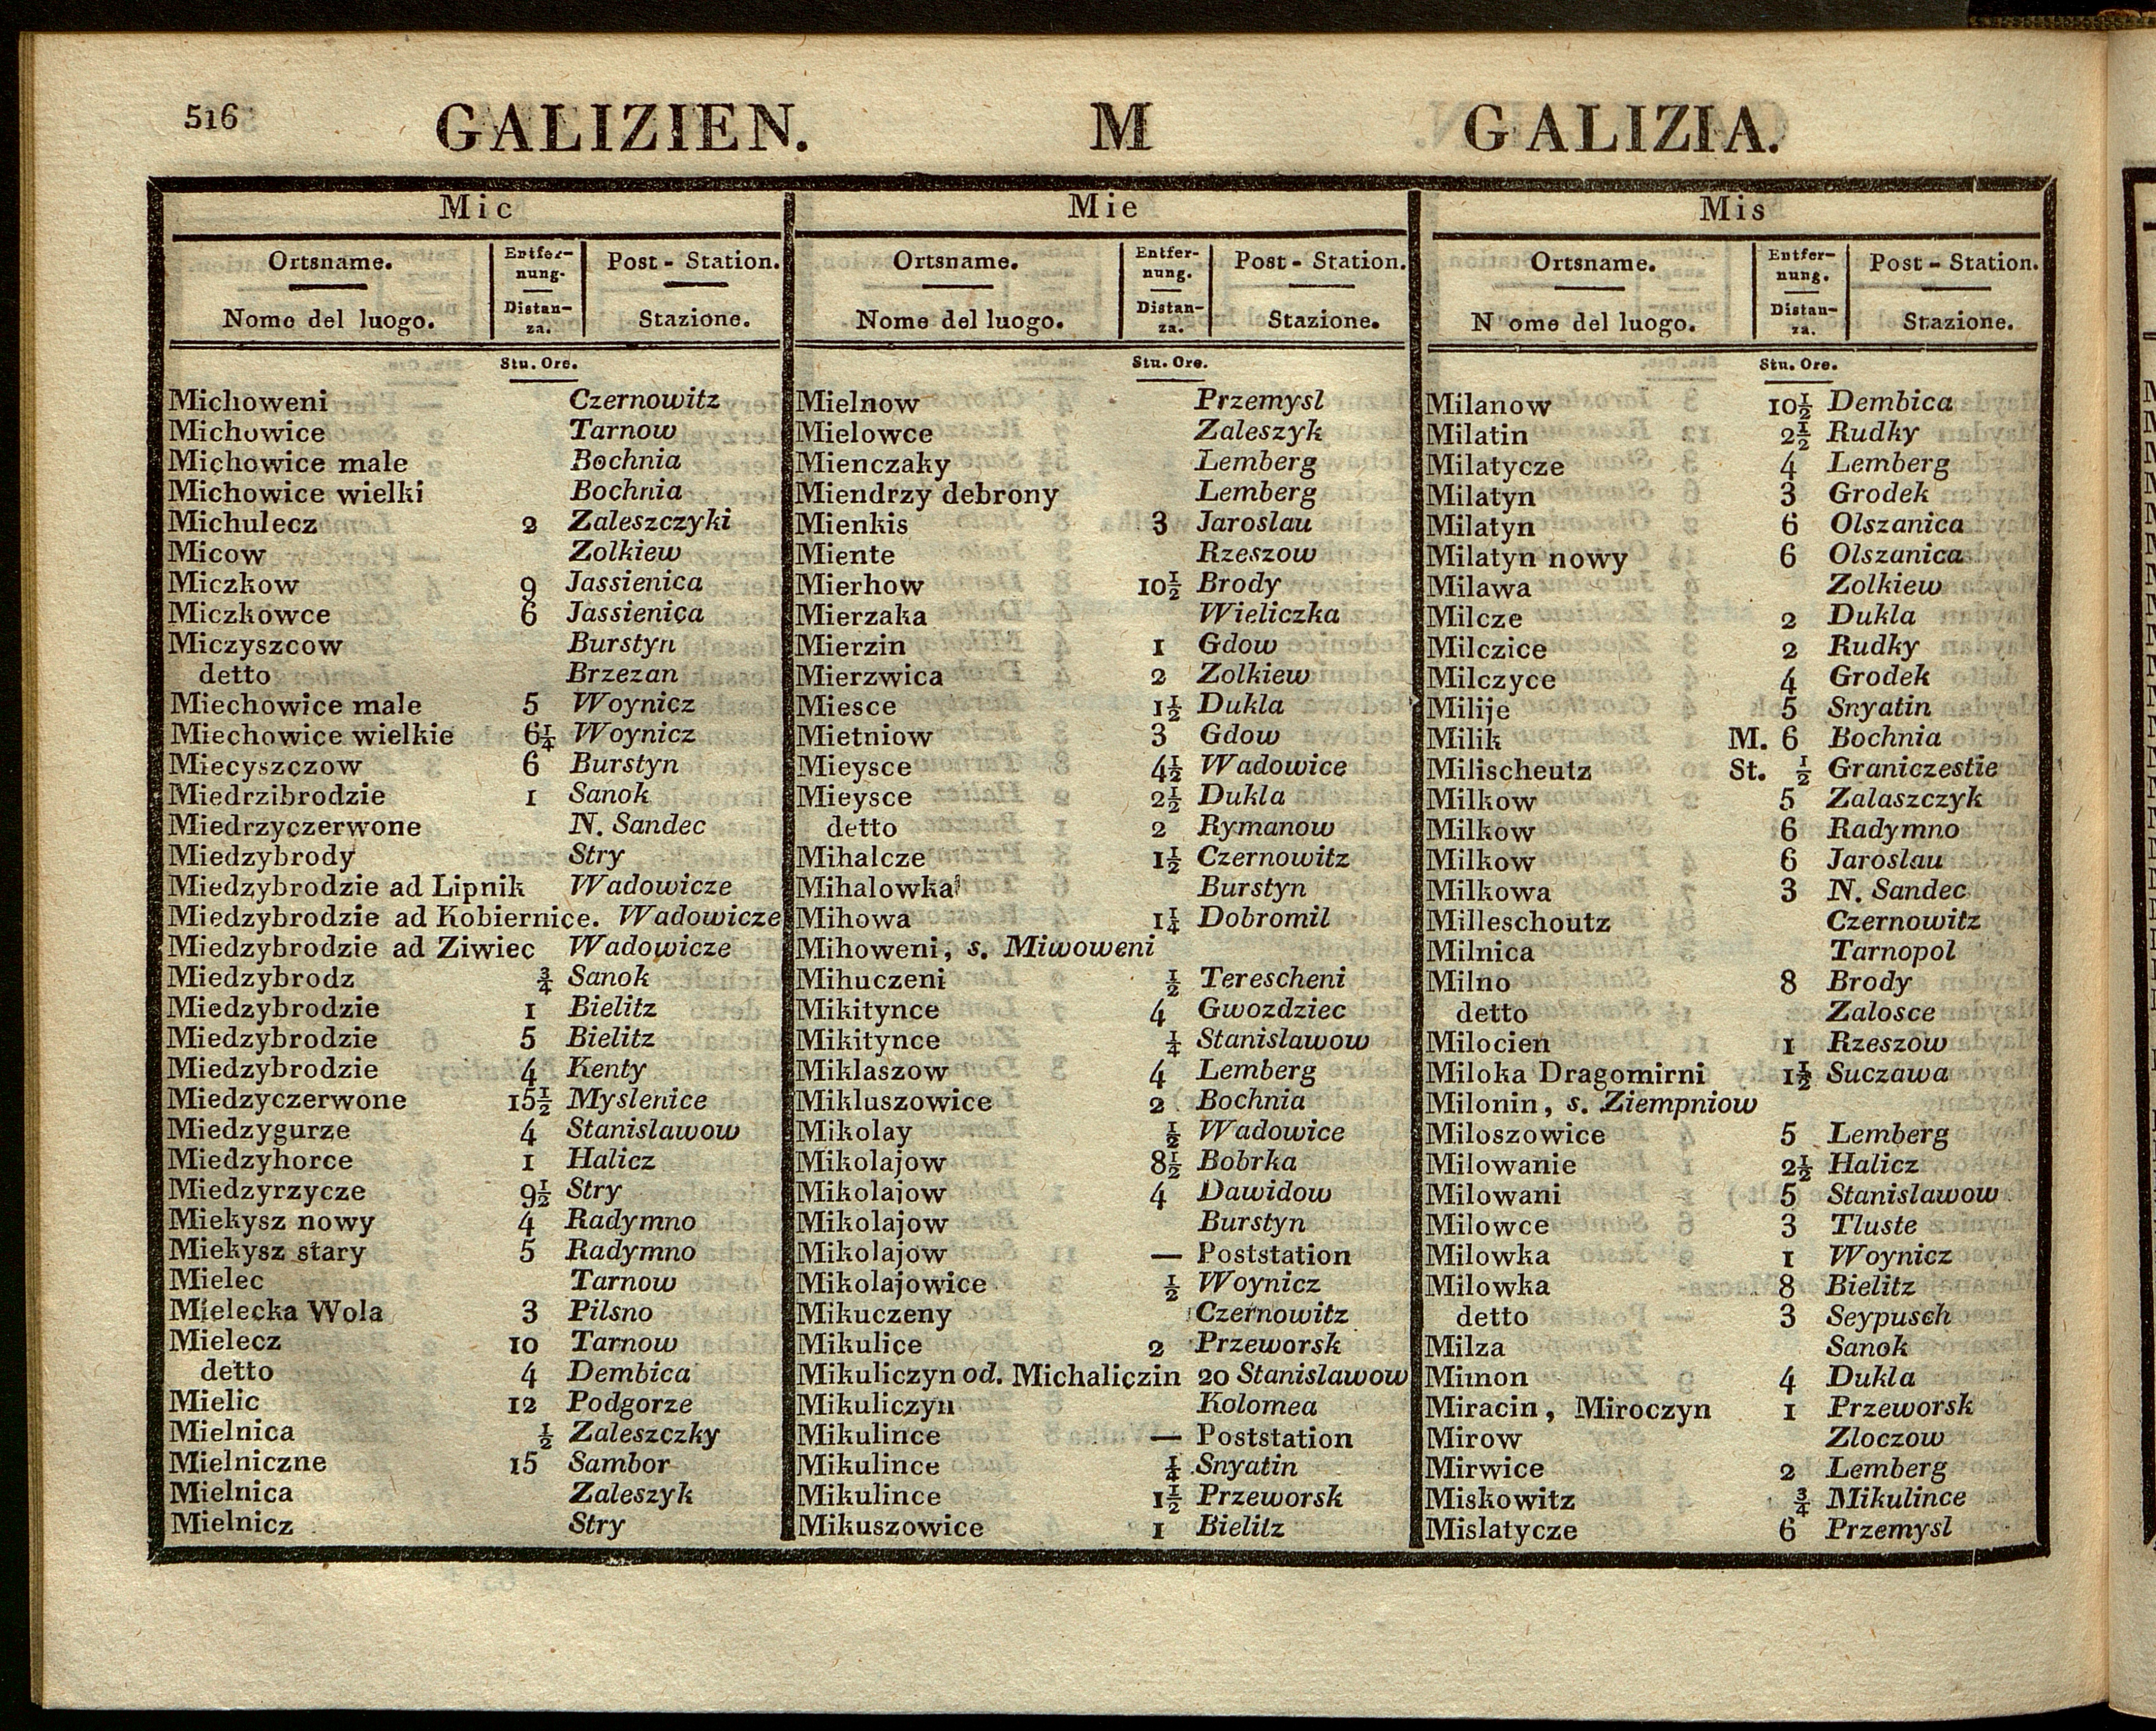 516
GALIZIEN. M GALIZIA.
Mic
Ortsname. Entfer-nung. Post - Station.
Nome del luogo. Distan-za. Stazione.
Stu. Ore.
Michoweni Czernowitz
Michowice Tarnow
Michowice male Bochnia
Michowice wielki Bochnia
Michulecz 2 Zaleszczyki
Micow Zolkiew
Miczkow 9 Jassienica
Miczkowce 6 Jassienica
Miczyszcow Burstyn
detto Brzezan
Miechowice male 5 Woynicz
Miechowice wielkie 6¼ Woynicz
Miecyszczow 6 Burstyn
Miedrzibrodzie 1 Sanok
Miedrzyczerwone N. Sandec
Miedzybrody Stry
Miedzybrodzie ad Lipnik Wadowicze
Miedzybrodzie ad Kobiernice. Wadowicze
Miedzybrodzie ad Ziwiec Wadowicze
Miedzybrodz ¾ Sanok
Miedzybrodzie 1 Bielitz
Miedzybrodzie 5 Bielitz
Miedzybrodzie 4 Kenty
Miedzyczerwone 15½ Myslenice
Miedzygurze 4 Stanislawow
Miedzyhorce 1 Halicz
Miedzyrzycze 9½ Stry
Miekysz nowy 4 Radymno
Miekysz stary 5 Radymno
Mielec Tarnow
Mielecka Wola 3 Pilsno
Mielecz 10 Tarnow
detto 4 Dembica
Mielic 12 Podgorze
Mielnica ½ Zaleszczky
Mielniczne 15 Sambor
Mielnica Zaleszyk
Mielnicz Stry
Mie
Ortsname. Entfer-nung. Post - Station.
Nome del luogo. Distan-za. Stazione.
Stu. Ore.
Mielnow Przemysl
Mielowce Zaleszyk
Mienczaky Lemberg
Miendrzy debrony Lemberg
Mienkis 3 Jaroslau
Miente Rzeszow
Mierhow 10½ Brody
Mierzaka Wieliczka
Mierzin 1 Gdow
Mierzwica 2 Zolkiew
Miesce 1½ Dukla
Mietniow 3 Gdow
Mieysce 4½ Wadowice
Mieysce 2½ Dukla
detto 2 Rymanow
Mihalcze 1½ Czernowitz
Mihalowka Burstyn
Mihowa 1¼ Dobromil
Mihoweni, s. Miwoweni
Mihuczeni ½ Terescheni
Mikitynce 4 Gwozdziec
Mikitynce ¼ Stanislawow
Miklaszow 4 Lemberg
Mikluszowice 2 Bochnia
Mikolay ½ Wadowice
Mikolajow 8½ Bobrka
Mikolajow 4 Dawidow
Mikolajow Burstyn
Mikolajow — Poststation
Mikolajowice ½ Woynicz
Mikuczeny Czernowitz
Mikulice 2 Przeworsk
Mikuliczyn od. Michaliczin 20 Stanislawow
Mikuliczyn Kolomea
Mikulince — Poststation
Mikulince ¼ Snyatin
Mikulince 1½ Przeworsk
Mikuszowice 1 Bielitz
Mis
Ortsname. Entfer-nung. Post - Station.
N ome del luogo. Distan-za. Stazione.
Stu. Ore.
Milanow 10½ Dembica
Milatin 2½ Rudky
Milatycze 4 Lemberg
Milatyn 3 Grodek
Milatyn 6 Olszanica
Milatyn nowy 6 Olszanica
Milawa Zolkiew
Milcze 2 Dukla
Milczice 2 Rudky
Milczyce 4 Grodek
Milije 5 Snyatin
Milik M. 6 Bochnia
Milischeutz St. ½ Graniczestie
Milkow 5 Zalaszczyk
Milkow 6 Radymno
Milkow 6 Jaroslau
Milkowa 3 N. Sandec
Milleschoutz Czernowitz
Milnica Tarnopol
Milno 8 Brody
detto Zalosce
Milocien 1 Rzeszow
Miloka Dragomirni 1½ Suczawa
Milonin, s. Ziempniow
Miloszowice 5 Lemberg
Milowanie 2½ Halicz
Milowani 5 Stanislawow
Milowce 3 Tluste
Milowka 1 Woynicz
Milowka 8 Bielitz
detto 3 Seypusch
Milza Sanok
Mimon 4 Dukla
Miracin, Miroczyn 1 Przeworsk
Mirow Zloczow
Mirwice 2 Lemberg
Miskowitz ¾ Mikulince
Mislatycze 6 Przemysl